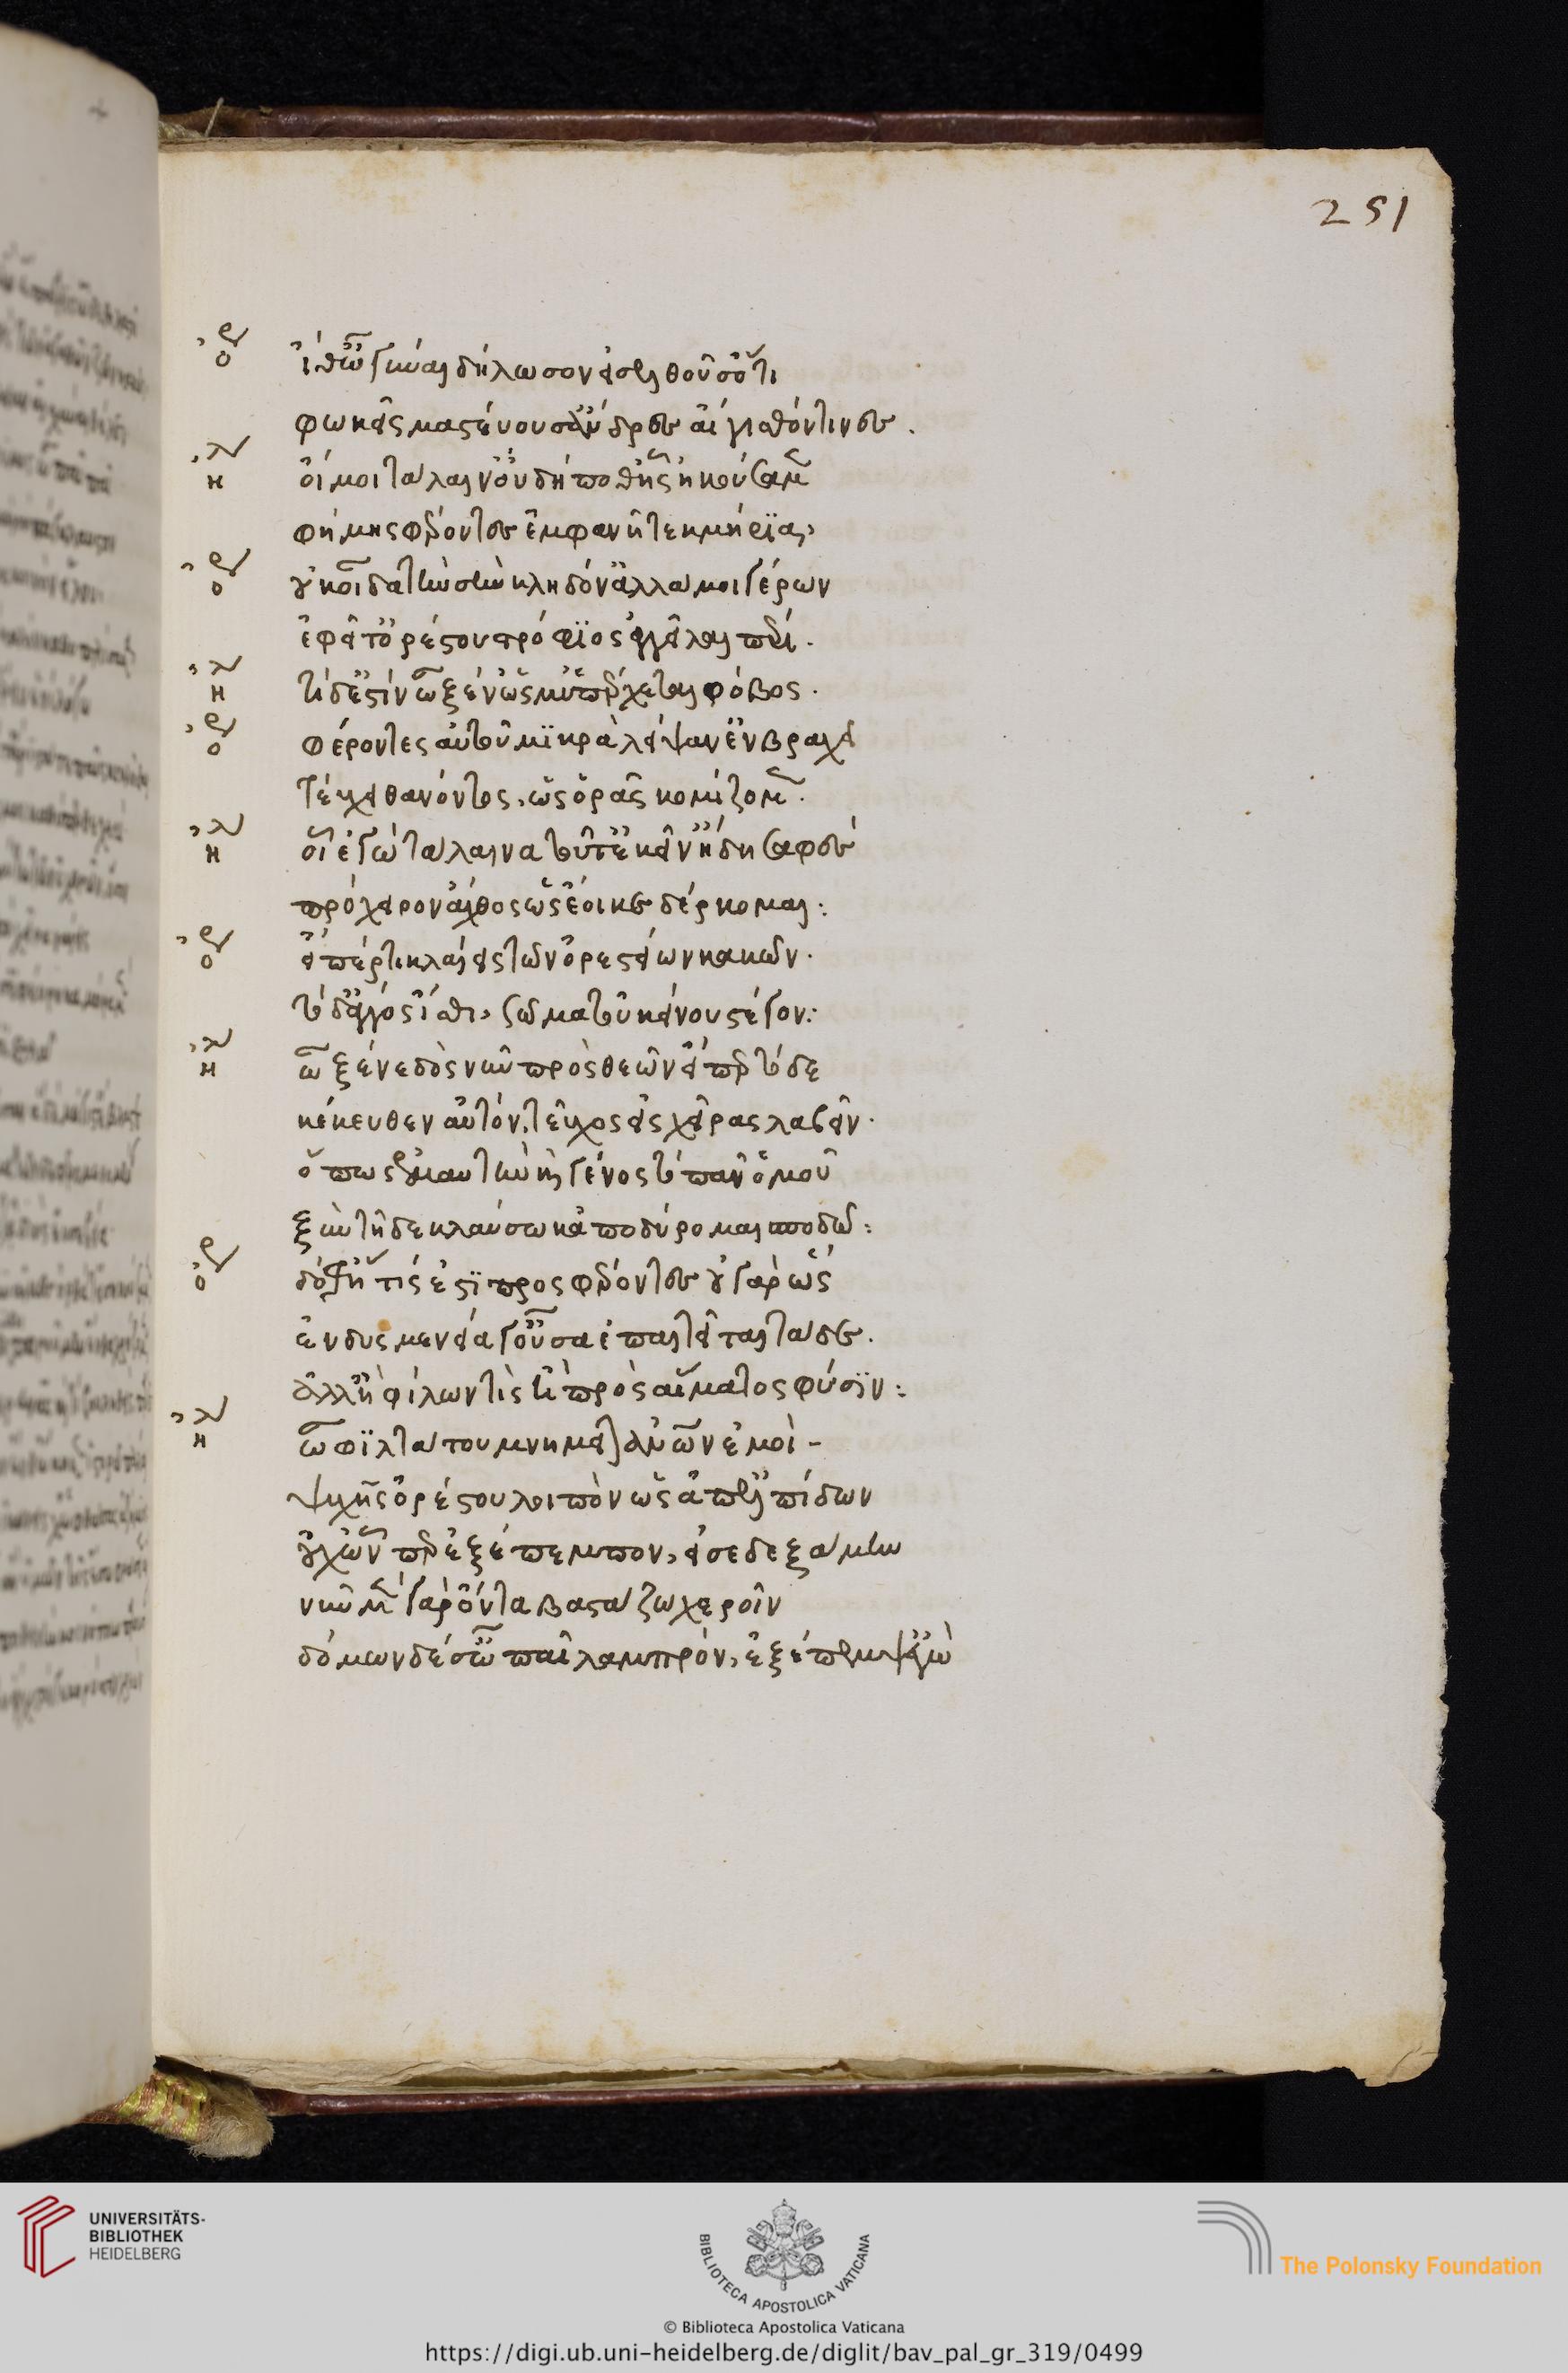 251
ὀρ ἴθ' ὦ γύναι δήλωσον εἰσελθοῦσ' ὅτι
φωκεῖς μαστεύουσ' ἄνδρες αἴγισθόν τινες.
ἠλ οἴμοι τάλαιν' οὐ δή ποθ' ἧς ἠκούσαμεν
φήμης φέροντες ἐμφανῆ τεκμήρια,
ὀρ οὐκ οἶδα τὴν σὴν κληδόν' ἀλλά μοι γέρων
ἐφεῖτ' ὀρέστου στρόφιος ἀγγεῖλαι πέρι.
ἠλ τί δ' ἔστίν ὦ ξέν' ὥς μ' ὑπέρχεται φόβος.
ὀρ φέροντες αὐτοῦ μικρὰ λείψαν' ἐν βραχεῖ
τεύχει θανόντος, ὡς ὁρᾶς κομίζομεν.
ἠλ οἲ ἐγὼ τάλαινα τοῦτ' ἐκεῖν' ἤδη σαφές
πρόχειρον ἄχθος ὡς ἔοικε δέρκομαι:
ὀρ εἴπέρ τι κλαίεις τῶν ὀρεστείων κακῶν.
τόδ' ἄγγός ἴσθι, σῶμα τοῦ κείνου στέγον:
ἠλ ὦ ξένε δὸς νῦν πρὸς θεῶν εἴπερ τόδε
κέκευθεν αὐτόν, τεῦχος εἰς χεῖρας λαβεῖν.
ὅπως ἐμαυτὴν καὶ γένος τό πᾶν ὁμοῦ
ξὺν τῆδε κλαύσω κἀποδύρομαι σποδῶ:
ὀρ δόθ' ἥτις ἐστὶ προσφέροντες οὐ γὰρ ὥς
ἐν δυσμενεία γ' οὖσα ἐπαιτεῖται τάδε.
ἀλλ' ἢ φίλων τὶς ἢ πρὸς αἵματος φύσιν:
ἠλ ὦ φιλτάτου μνημεῖον ἀνθρώπων ἐμοὶ
ψυχῆς ὀρέστου λοιπὸν ὥς ἀπ' ἐλπίδων
οὐχ ὧνπερ ἐξέπεμπον, εἰσεδεξάμην
νῦν μὲν γὰρ ὄντα βαστάζω χεροῖν
δόμων δέ σ' ὦ παῖ λαμπρὸν, ἐξέπεμψ' ἐγὼ
UNIVERSITÄTS-
BIBLIOTHEK
HEIDELBERG
BIBLIOTECA APOSTOLICA VATICANA
The Polonsky Foundation
© Biblioteca Apostolica Vaticana
https://digi.ub.uni-heidelberg.de/diglit/bav_pal_gr_319/0499